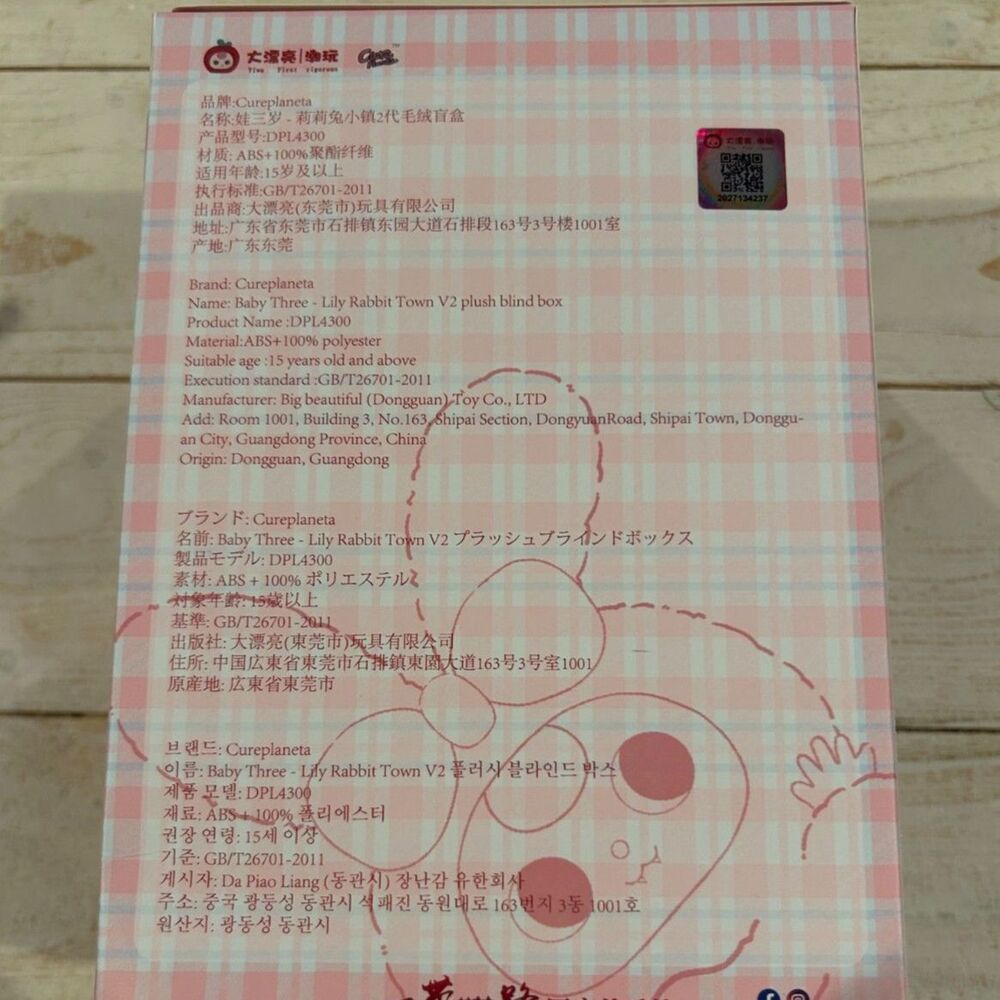 大漂亮|潮玩
Yiwu First vigorous
品牌:Cureplaneta
名称:娃三岁 - 莉莉兔小镇2代毛绒盲盒
产品型号:DPL4300
材质: ABS+100%聚酯纤维
适用年龄:15岁及以上
执行标准:GB/T26701-2011
出品商:大漂亮(东莞市)玩具有限公司
地址:广东省东莞市石排镇东园大道石排段163号3号楼1001室
产地:广东东莞
大漂亮 潮玩
2027134237
Brand: Cureplaneta
Name: Baby Three - Lily Rabbit Town V2 plush blind box
Product Name :DPL4300
Material:ABS+100% polyester
Suitable age :15 years old and above
Execution standard :GB/T26701-2011
Manufacturer: Big beautiful (Dongguan) Toy Co., LTD
Add: Room 1001, Building 3, No.163, Shipai Section, DongyuanRoad, Shipai Town, Donggu-
an City, Guangdong Province, China
Origin: Dongguan, Guangdong
ブランド: Cureplaneta
名前: Baby Three - Lily Rabbit Town V2 プラッシュブラインドボックス
製品モデル: DPL4300
素材: ABS + 100% ポリエステル
対象年齢: 15歳以上
基準: GB/T26701-2011
出版社: 大漂亮(東莞市)玩具有限公司
住所: 中国広東省東莞市石排鎮東園大道163号3号室1001
原産地: 広東省東莞市
브랜드: Cureplaneta
이름: Baby Three - Lily Rabbit Town V2 플러시 블라인드 박스
제품 모델: DPL4300
재료: ABS + 100% 폴리에스터
권장 연령: 15세 이상
기준: GB/T26701-2011
게시자: Da Piao Liang (동관시) 장난감 유한회사
주소: 중국 광둥성 동관시 석패진 동원대로 163번지 3동 1001호
원산지: 광동성 동관시